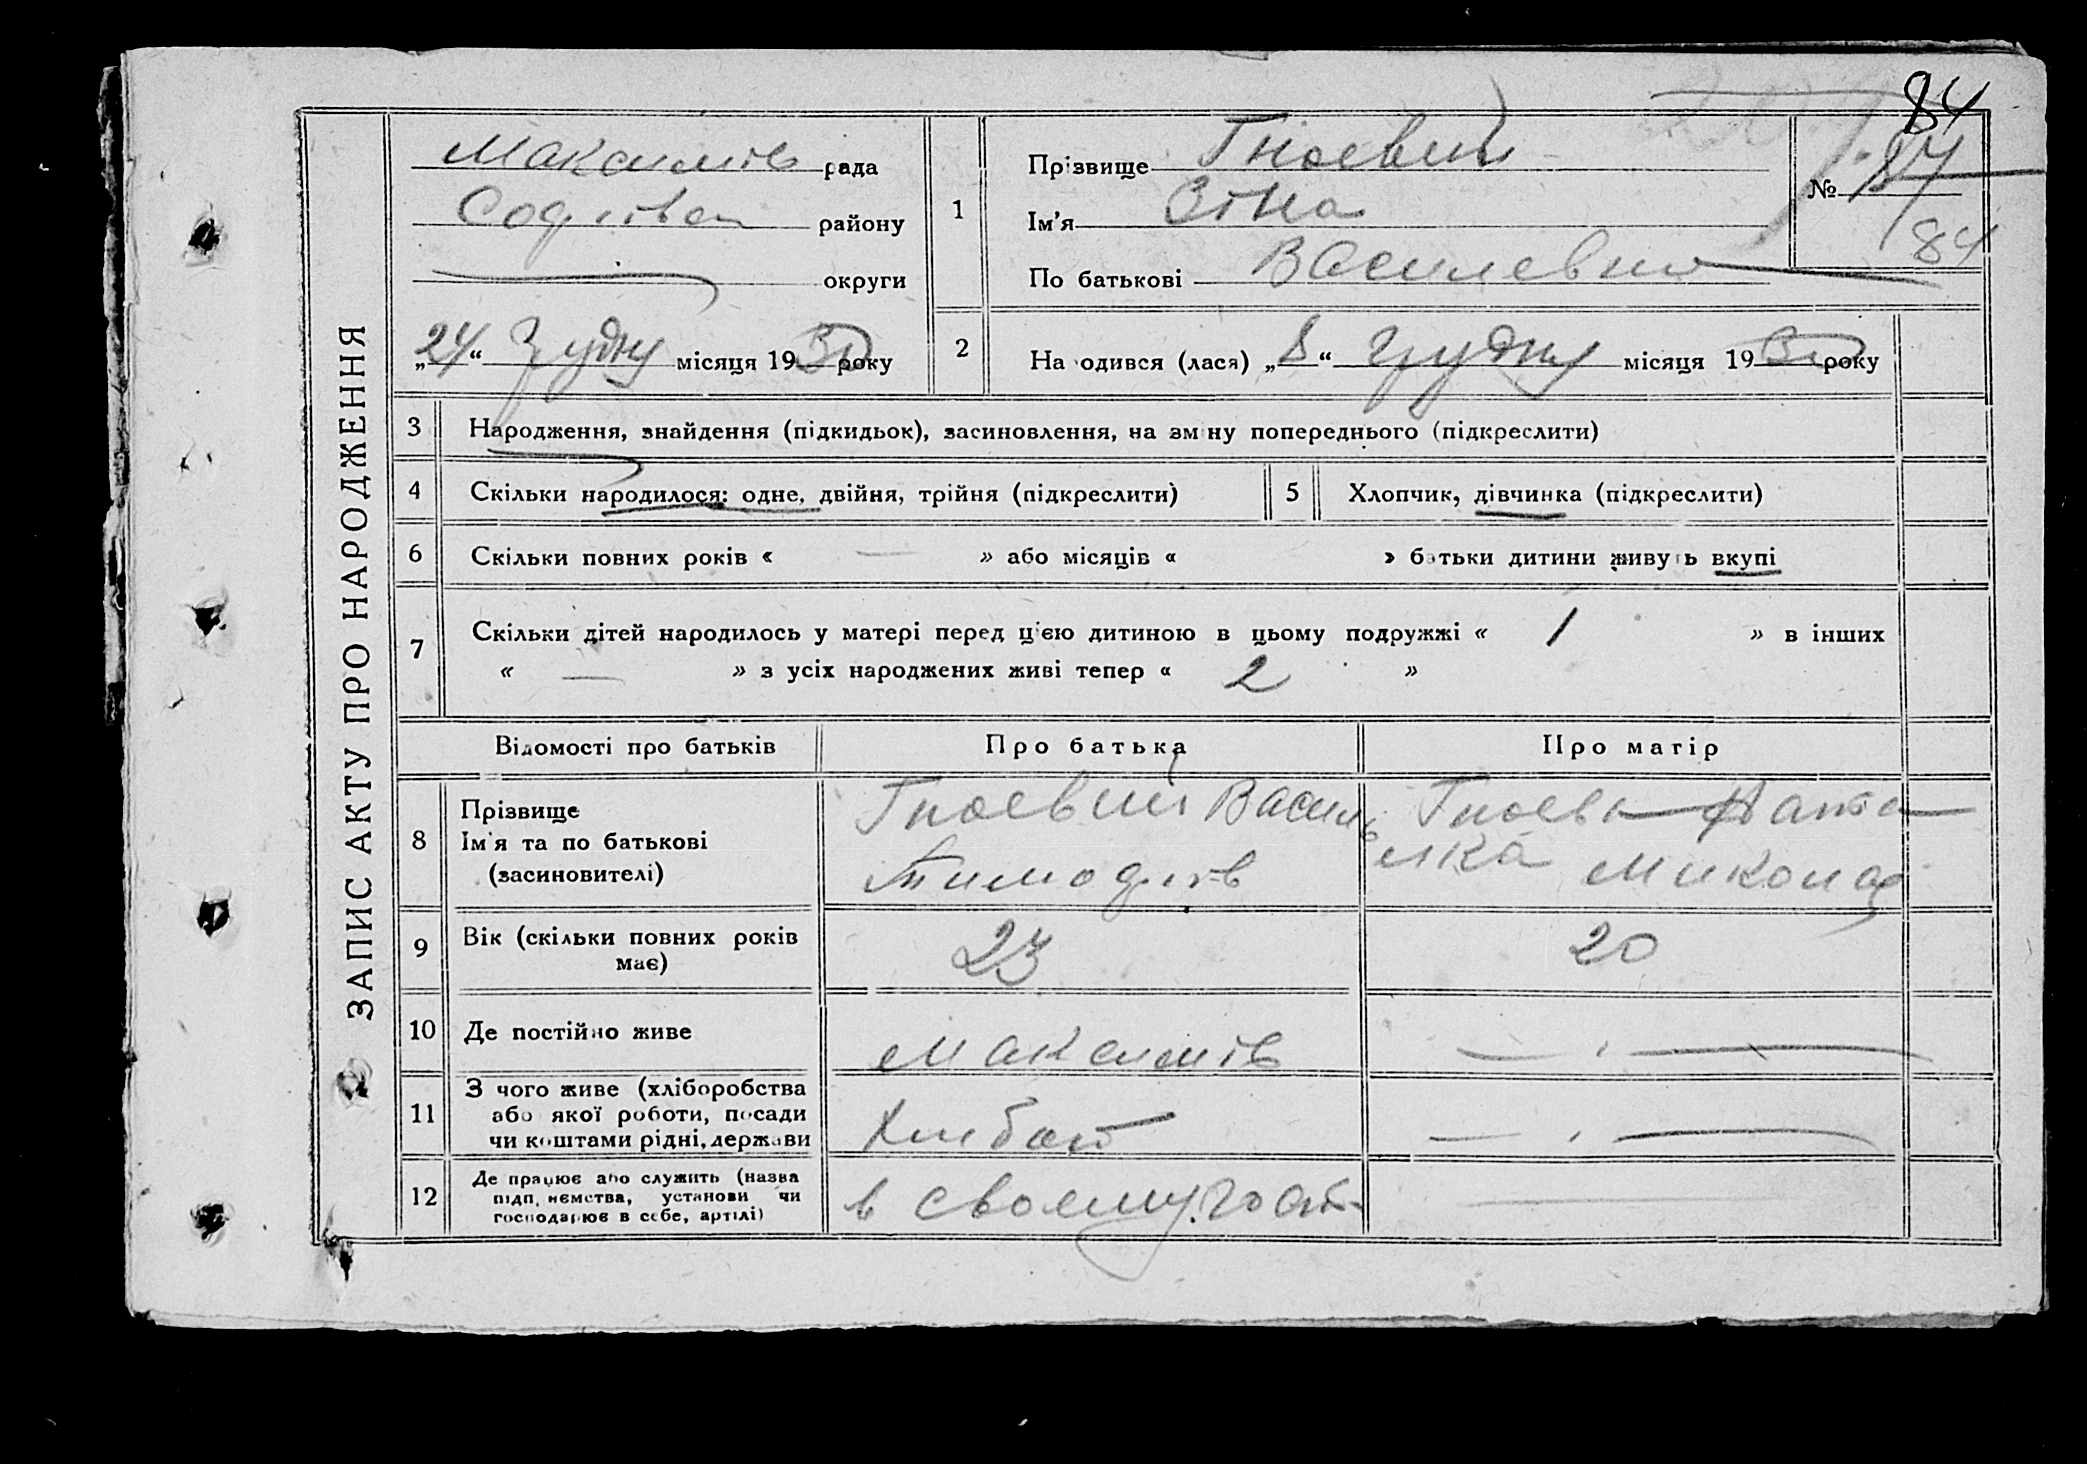 84
ЗАПИС АКТУ ПРО НАРОДЖЕННЯ
Максимів рада
району
округи
„24“ грудну місяця 1930 року
1
Прізвище Гноевий
Ім'я Зіна
По батькові Василевна
№ 87
84
2
На одився (лася) „8“ грудну місяця 1930 року
3 Народження, знайдення (підкидьок), засиновлення, на зміну попереднього (підкреслити)
4 Скільки народилося: одне, двійня, трійня (підкреслити)
5 Хлопчик, дівчинка (підкреслити)
6 Скільки повних років « — » або місяців « » батьки дитини живуть вкупі
7 Скільки дітей народилось у матері перед цією дитиною в цьому подружжі « 1 » в інших
« — » з усіх народжених живі тепер « 2 »
Відомості про батьків Про батька Про матір
8 Прізвище
Ім'я та по батькові
(засновителі)
Гноевий Василь
Тимофіїв
Гноева Ната
лка Микола
9 Вік (скільки повних років
має)
23
20
10 Де постійно живе
Максимів
— ‚ —
11 З чого живе (хліборобства
або якої роботи, посади
чи коштами рідні, держави
Хлибоп
— ‚ —
12 Де працює або служить (назва
підприємства, установи чи
господарює в себе, артілі)
в своему госп
—